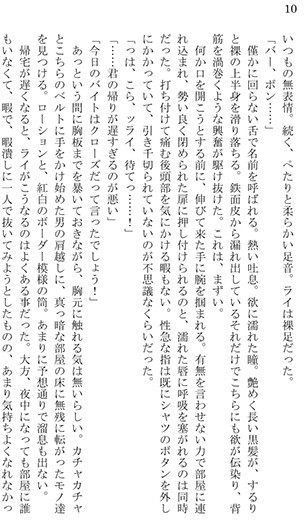 10
いつもの無表情。続く、ぺたりと柔らかい足音。ライは裸足だった。
「バー、ボン……」
僅かに回らない舌で名前を呼ばれる。熱い吐息。欲に濡れた瞳。艶めく長い黒髪が、するり
と裸の上半身を滑り落ちる。鉄面皮から漏れ出ているそれだけでこちらにも欲が伝染り、背
筋を渦巻くような興奮が駆け抜けた。これは、まずい。
何か口を開こうとする前に、伸びて来た手に腕を掴まれる。有無を言わせない力で部屋に連
れ込まれ、勢い良く閉められた扉に押し付けられるのと、濡れた唇に呼吸を塞がれるのは同時
だった。打ち付けて痛む後頭部を気にかける暇もない。性急な指は既にシャツのボタンを外し
にかかっていて、引き千切られていないのが不思議なくらいだった。
「っは、こら、ッライ、待てっ……！」
「……君の帰りが遅すぎるのが悪い」
「今日のバイトはクローズだって言ったでしょう！」
あっという間に胸板までを暴いておきながら、胸元に触れる気は無いらしい。カチャカチャ
とこちらのベルトに手をかけ始めた男の肩越しに、真っ暗な部屋の床に無残に転がったモノ達
を見つける。ローションと、紅白のボーダー模様の筒。あまりに予想通りで溜息も出ない。
帰宅が遅くなると、ライがこうなるのはよくある事だった。大方、夜中になっても部屋に誰
もいなくて、暇で、暇潰しに一人で抜いてみようとしたものの、あまり気持ちよくなれなかっ